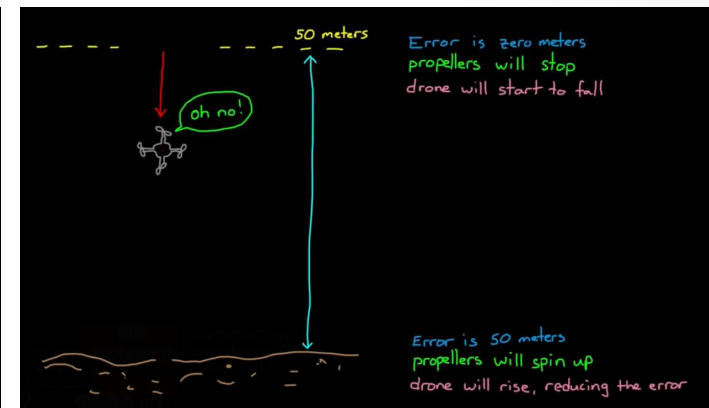 50 meters
Error is zero meters
propellers will stop
drone will start to fall
oh no!
Error is 50 meters
propellers will spin up
drone will rise, reducing the error